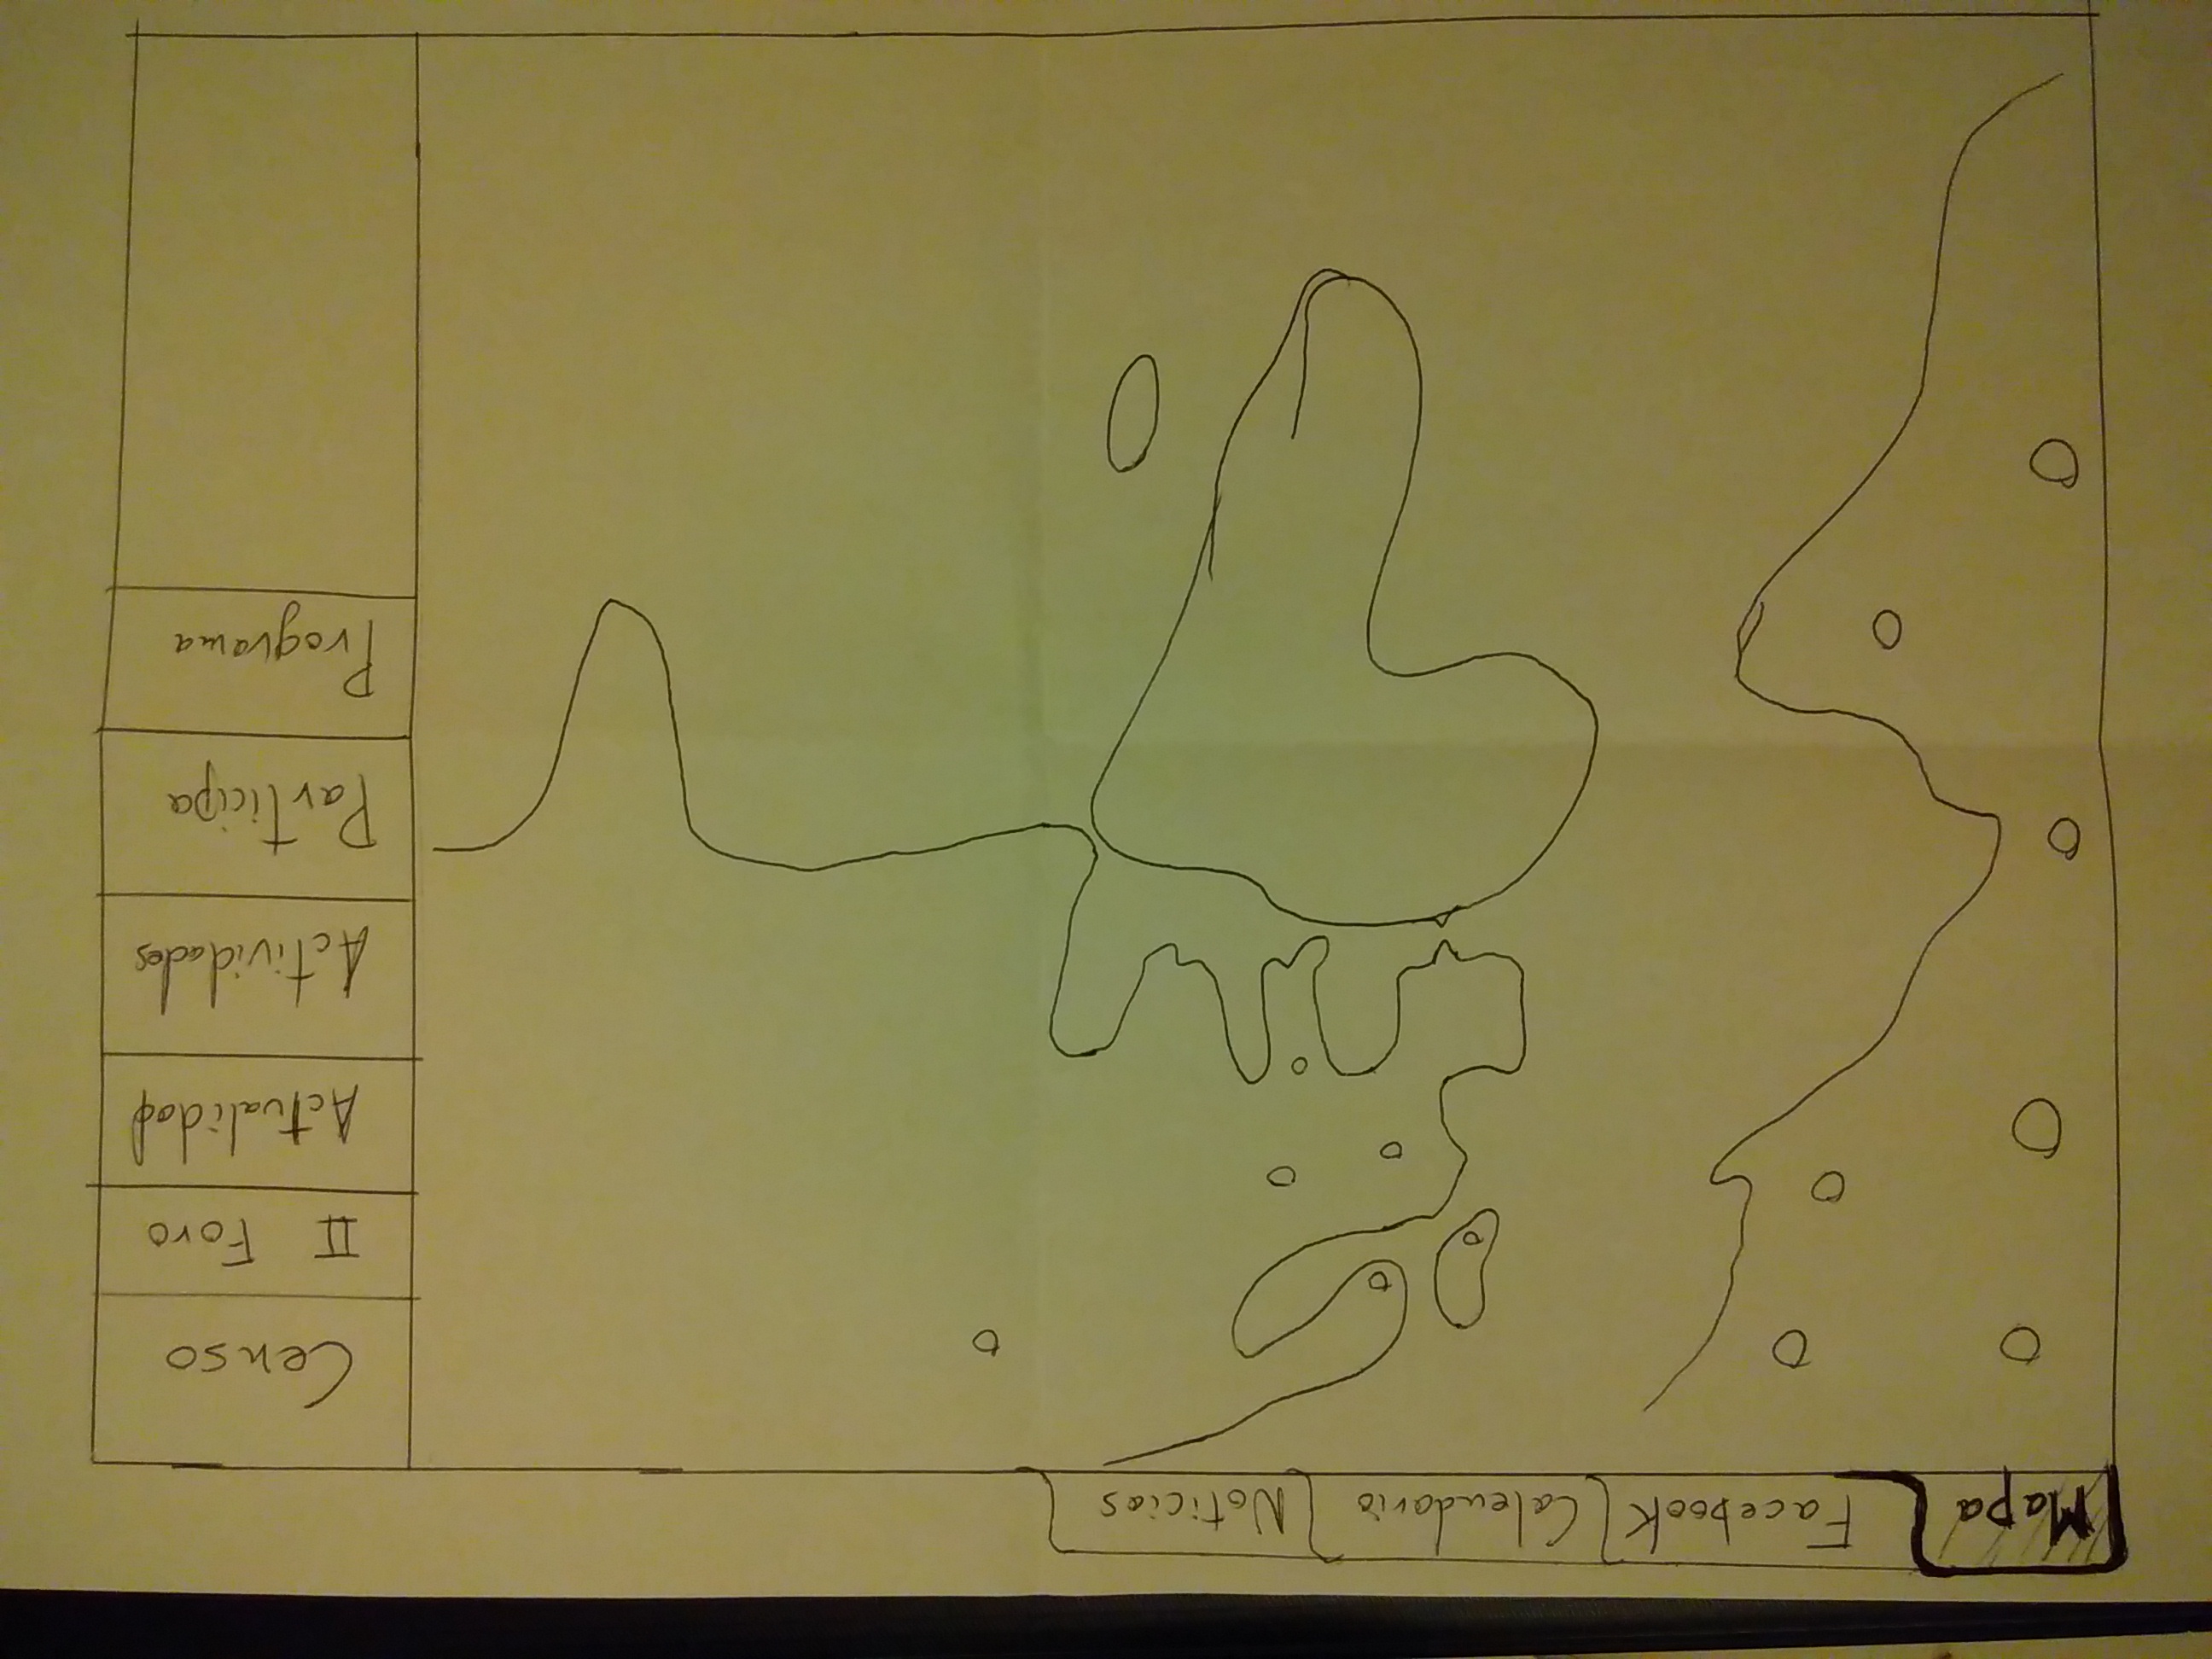 Mapa Facebook Calendario Noticias
Censo
II Foro
Actualidad
Actividades
Participa
Programa